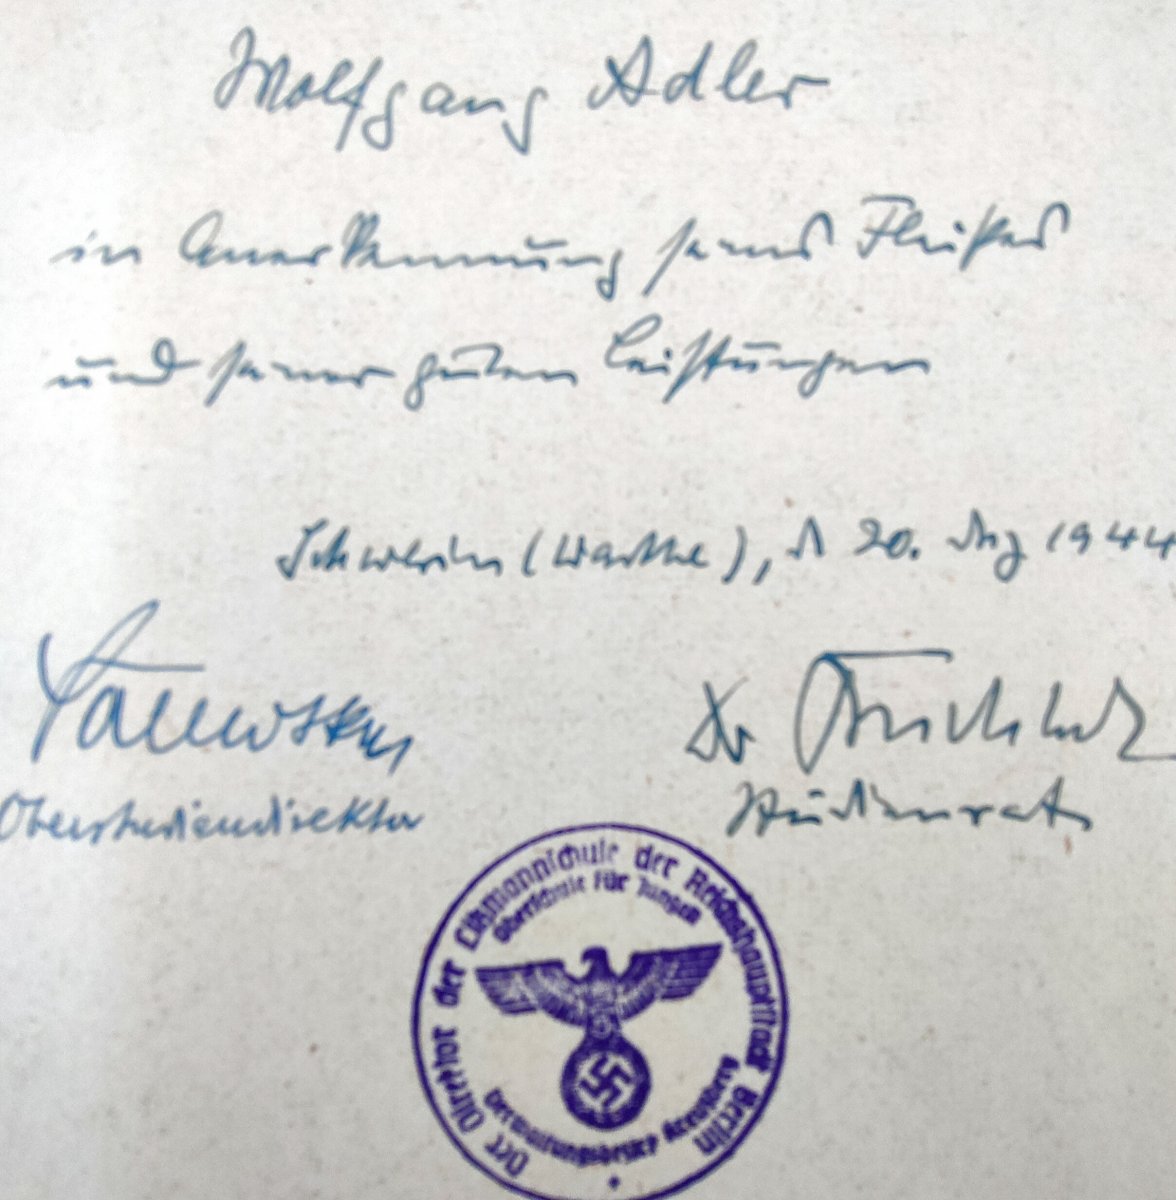 Wolfgang Adler
in Anerkennung seines Fleißes
und seiner guten Leistungen
Schwerin (Warthe), d 20. Dez 1944
Oberstudiendirektor
Dr
Studienrat
Der Direktor der Litzmannschule der Reichshauptstadt Berlin
Oberschule für Jungen
Verwaltungsbezirk Kreuzberg